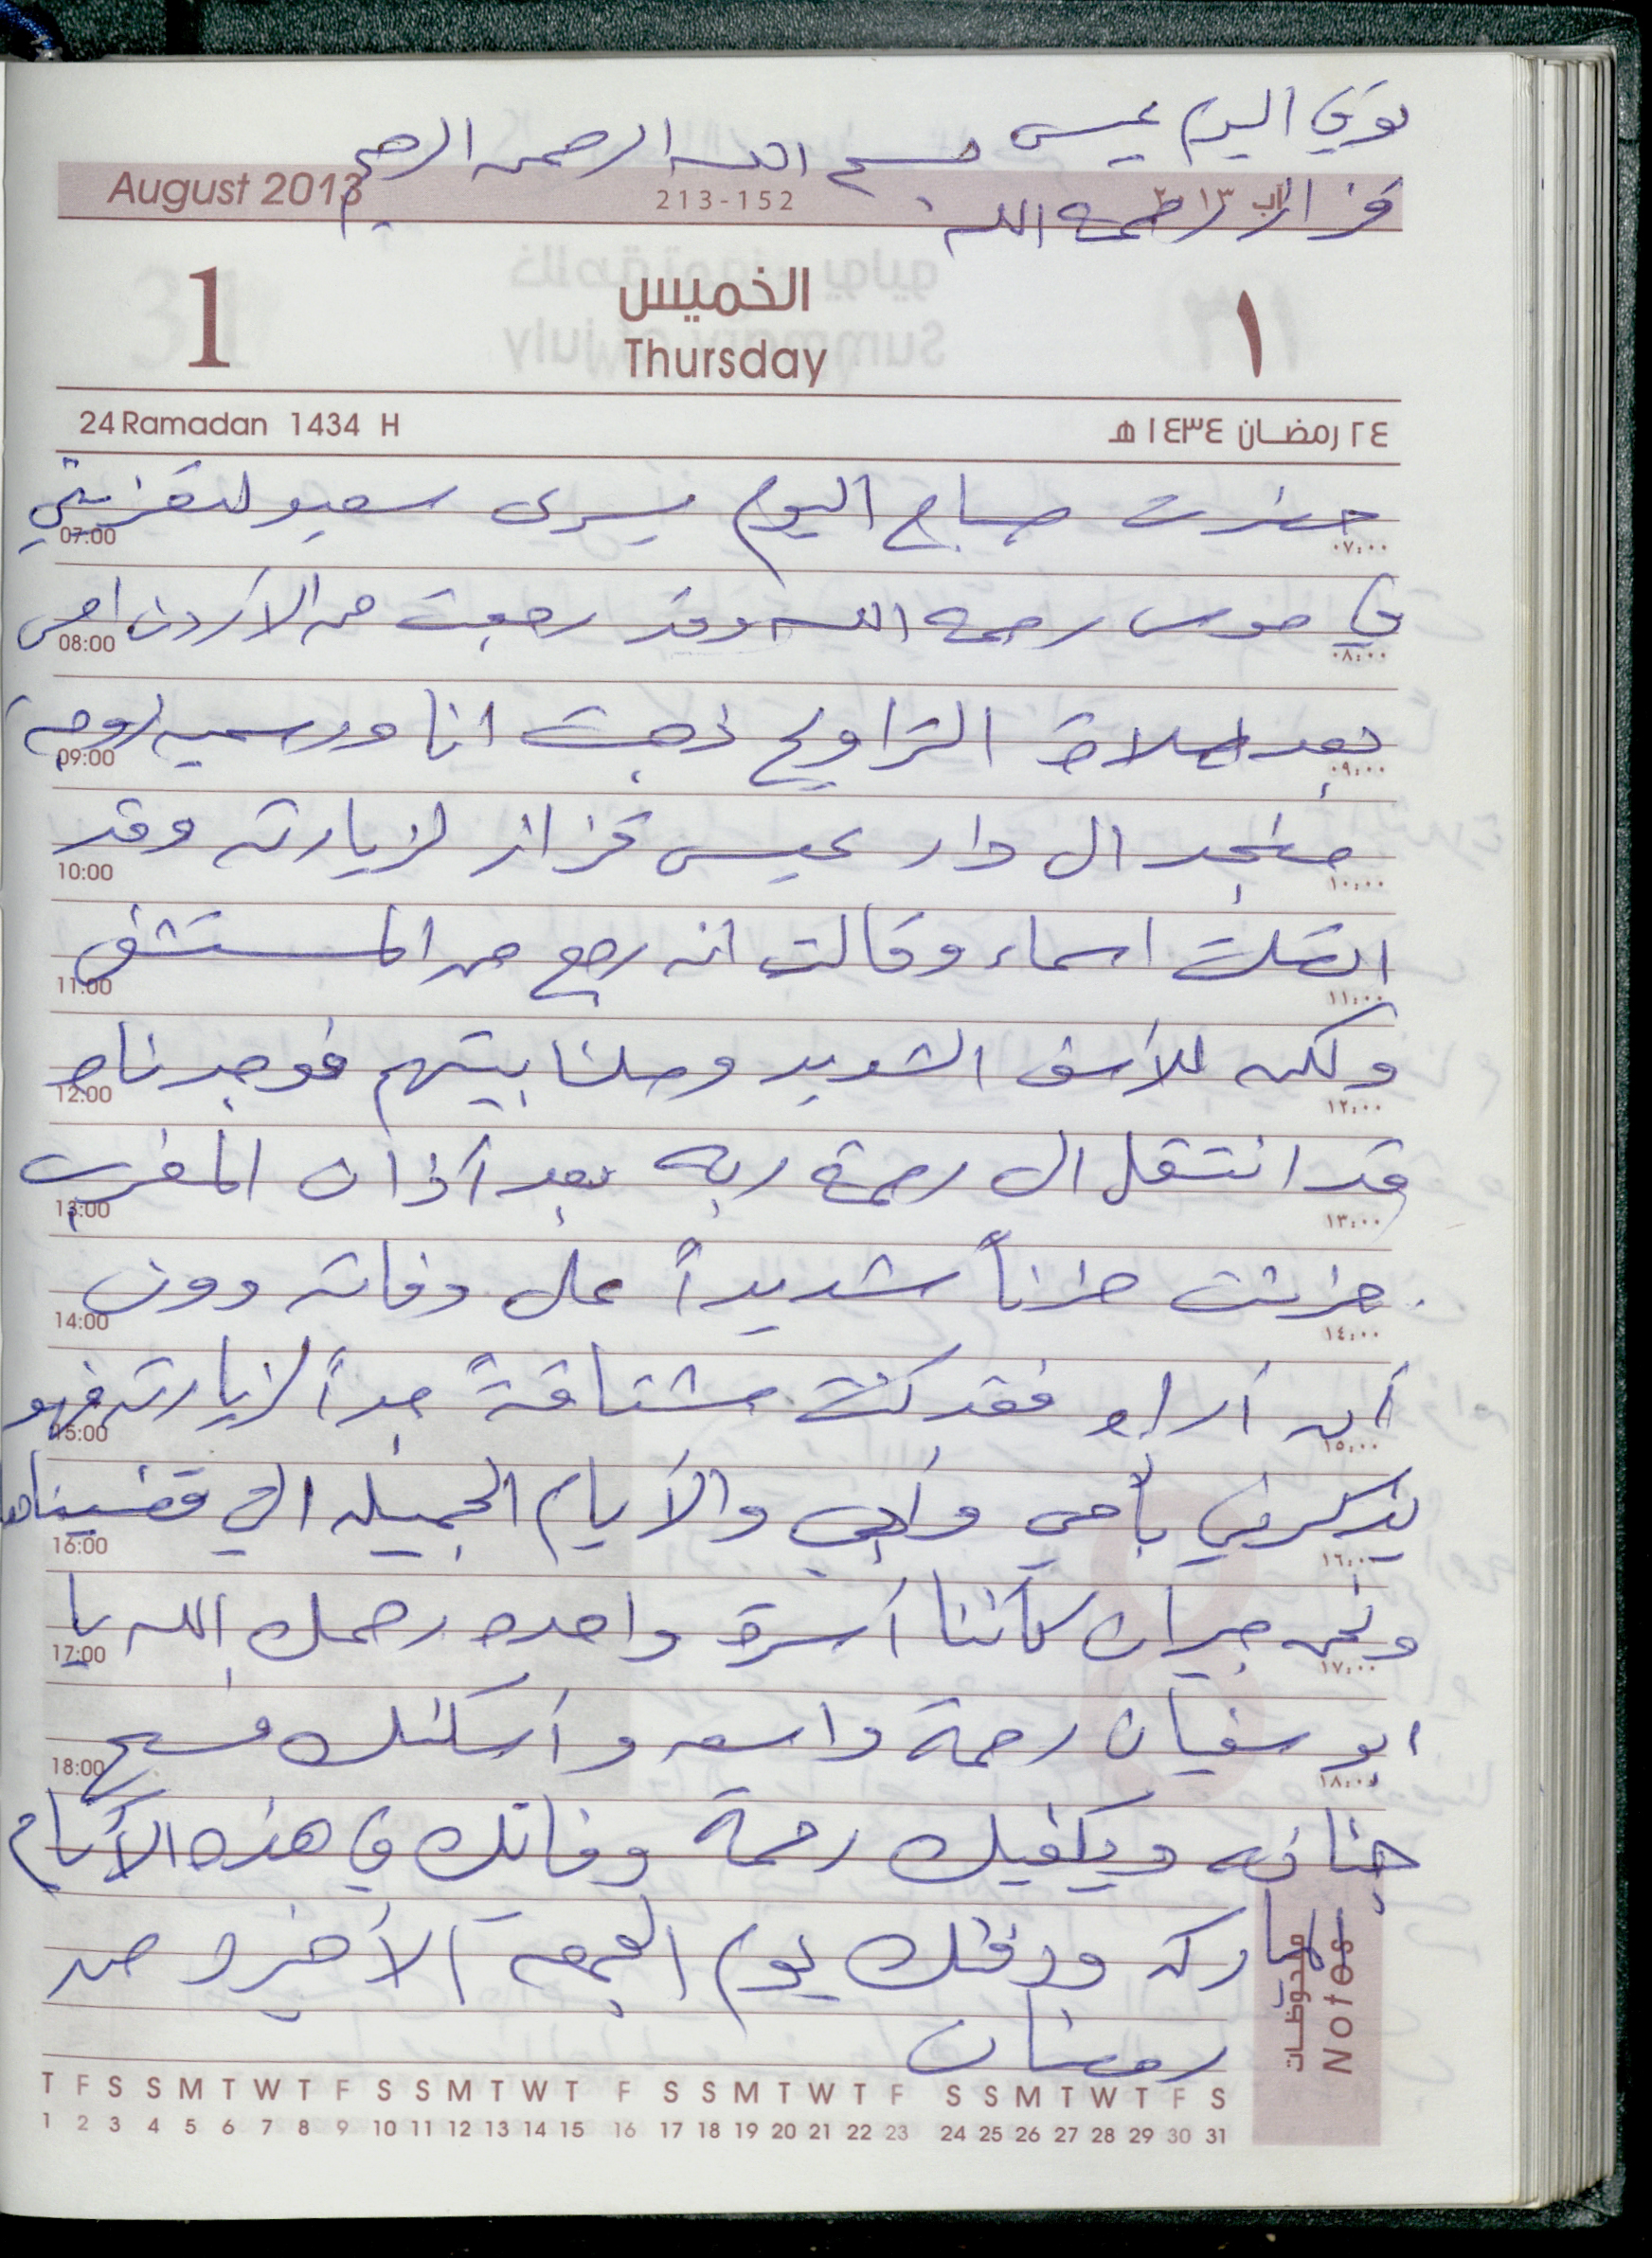 توفي اليوم عيسى
بسم الله الرحمن الرحيم
قزاز رحمه الله
August 2013 213-152 آب ٢٠١٣
1 الخميس ١
Thursday
24 Ramadan 1434 H ٢٤ رمضان ١٤٣٤ هـ
حضرت صباح اليوم يسرى سعيد لتعزيتي
07:00 ٠٧:٠٠
في موسى رحمه الله وقد رجعت من الأردن امس
08:00 ٠٨:٠٠
بعد صلاة التراويح ذهبت انا وسميه زوجة
09:00 ٠٩:٠٠
منجد الى دار عيسى قزاز لزيارته وقد
10:00 ١٠:٠٠
اتصلت اسماء وقالت انه رجع من المستشفى
11:00 ١١:٠٠
ولكن للأسف الشديد وصلنا بيتهم فوجدناه
12:00 ١٢:٠٠
قد انتقل الى رحمة ربه بعد أذان المغرب
13:00 ١٣:٠٠
حزنت حزناً شديداً على وفاته دون
14:00 ١٤:٠٠
أن أراه فقد كنت مشتاقةً جداً لزيارته فهو
15:00 ١٥:٠٠
يذكرني بأمي وأبي والأيام الجميله التي قضيناها
16:00 ١٦:٠٠
ونحن جيران كأننا أسرة واحده رحمك الله يا
17:00 ١٧:٠٠
ابو سفيان رحمة واسعه وأسكنك فسيح
18:00 ١٨:٠٠
جنانه ويكفيك رحمة وفاتك في هذه الأيام
المباركه ودفنك يوم الجمعه الأخيره من
رمضان
ملحوظات
Notes
T F S S M T W T F S S M T W T F S S M T W T F S S M T W T F S
1 2 3 4 5 6 7 8 9 10 11 12 13 14 15 16 17 18 19 20 21 22 23 24 25 26 27 28 29 30 31